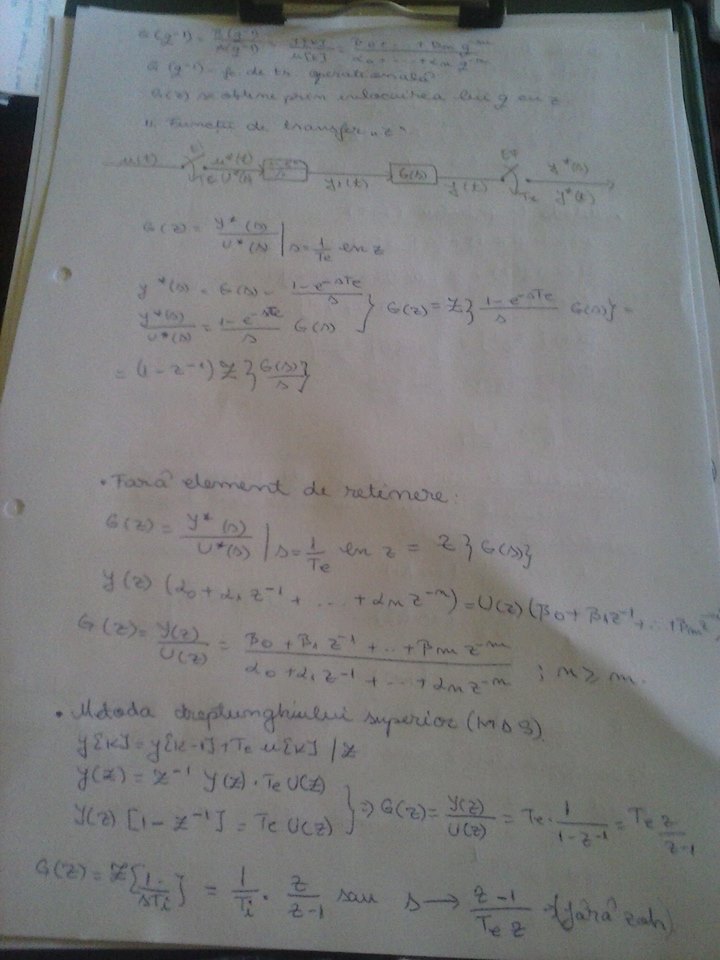 G(q⁻¹) = B(q⁻¹)/A(q⁻¹) = y[k]/u[k] = β0 + ... + βm q⁻ᵐ / α0 + ... + αn q⁻ⁿ
G(q⁻¹) - f. de tr. operatională
G(z) se obtine prin inlocuirea lui q cu z
11. Functii de transfer „z”
u(t) Te u*(t) U*(s) 1-e^-sTe/s y1(t) G(s) y(t) Te Y*(s) y*(t)
G(z) = Y*(s)/U*(s) | s = 1/Te ln z
Y*(s) = G(s) - 1-e^-sTe/s
Y*(s)/U*(s) = 1-e^-sTe/s G(s) } G(z) = Z{1-e^-sTe/s G(s)} =
= (1-z⁻¹) Z{G(s)/s}
• Fără element de retinere:
G(z) = Y*(s)/U*(s) | s = 1/Te ln z = Z{G(s)}
Y(z) (α0 + α1 z⁻¹ + ... + αn z⁻ⁿ) = U(z) (β0 + β1 z⁻¹ + ... + βm z⁻ᵐ)
G(z) = Y(z)/U(z) = β0 + β1 z⁻¹ + ... + βm z⁻ᵐ / α0 + α1 z⁻¹ + ... + αn z⁻ⁿ ; n ≥ m.
• Metoda dreptunghiului superior (MDS)
y[k] = y[k-1] + Te u[k] | Z
Y(z) = z⁻¹ Y(z) · Te U(z)
Y(z) [1 - z⁻¹] = Te U(z) } ⇒ G(z) = Y(z)/U(z) = Te · 1/1-z⁻¹ = Te z/z-1
G(z) = Z{1/sTi} = 1/Ti · z/z-1 sau s → z-1/Te z (fără zah)